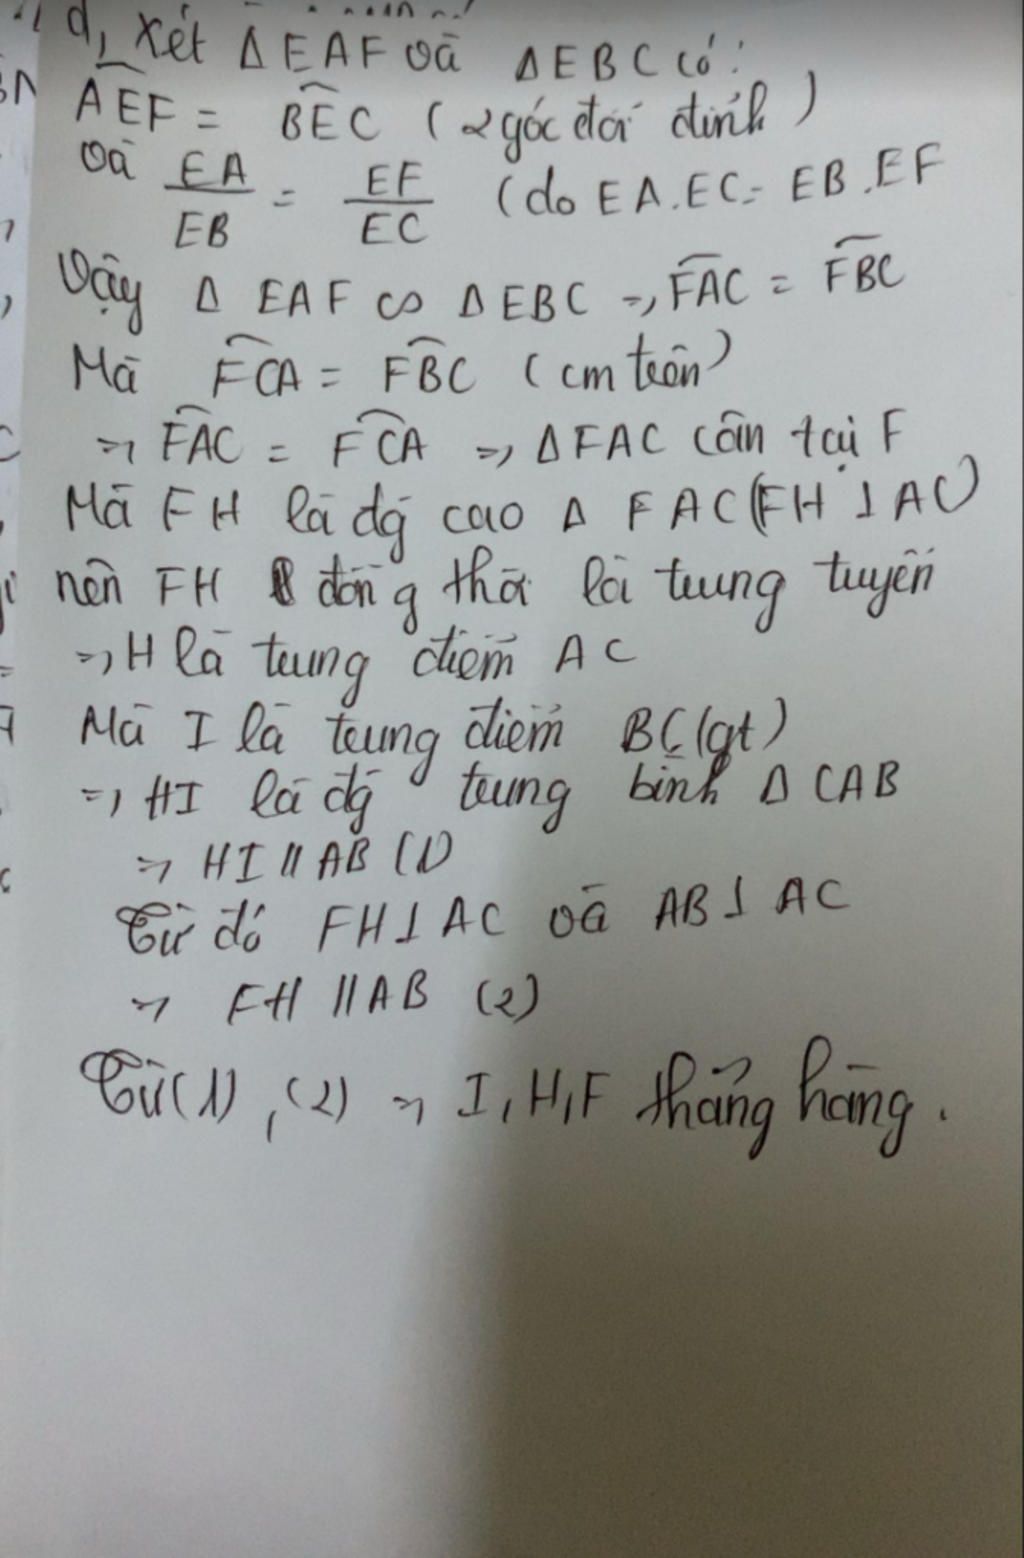 d, Xét Δ EAF và Δ EBC có:
AEF = BEC (2 góc đối đỉnh)
và EA/EB = EF/EC (do EA.EC = EB.EF
Vậy Δ EAF ∽ Δ EBC => FAC = FBC
Mà FCA = FBC (cm trên)
=> FAC = FCA => Δ FAC cân tại F
Mà FH là đg cao Δ FAC (FH ⊥ AC)
nên FH đồng thời là trung tuyến
=> H là trung điểm AC
Mà I là trung điểm BC (gt)
=> HI là đg trung bình Δ CAB
=> HI // AB (1)
Từ đó FH ⊥ AC và AB ⊥ AC
=> FH // AB (2)
Từ (1), (2) => I, H, F thẳng hàng.